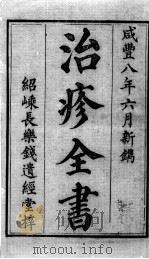 咸豐八年六月新鐫
治疹全書
紹嵊長樂錢遺經堂梓
mtoou.info